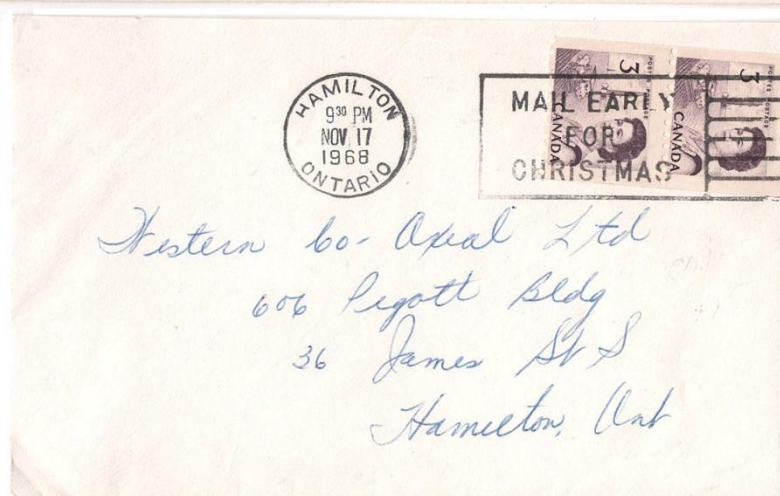 HAMILTON
9³⁰ PM
NOV. 17
1968
ONTARIO
MAIL EARLY
FOR
CHRISTMAS
3
POSTES POSTAGE
CANADA
3
POSTES POSTAGE
CANADA
Western Co-Axial Ltd
606 Pigott Bldg
36 James St S
Hamilton, Ont